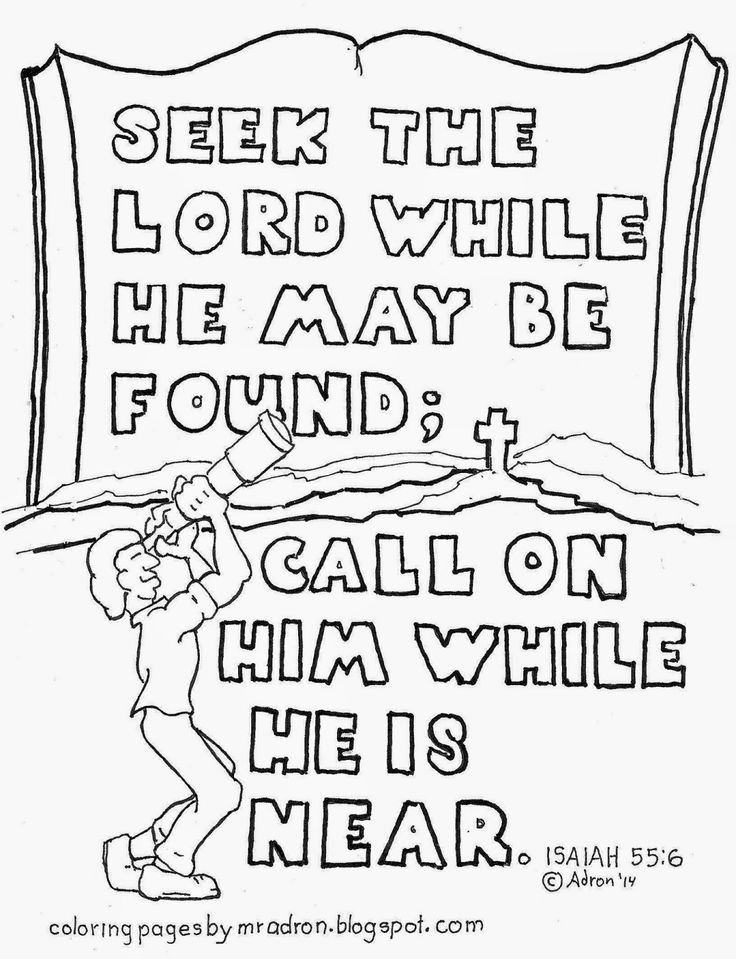 SEEK THE
LORD WHILE
HE MAY BE
FOUND;
CALL ON
HIM WHILE
HE IS
NEAR. ISAIAH 55:6
© Adron '14
coloring pages by mradron.blogspot.com